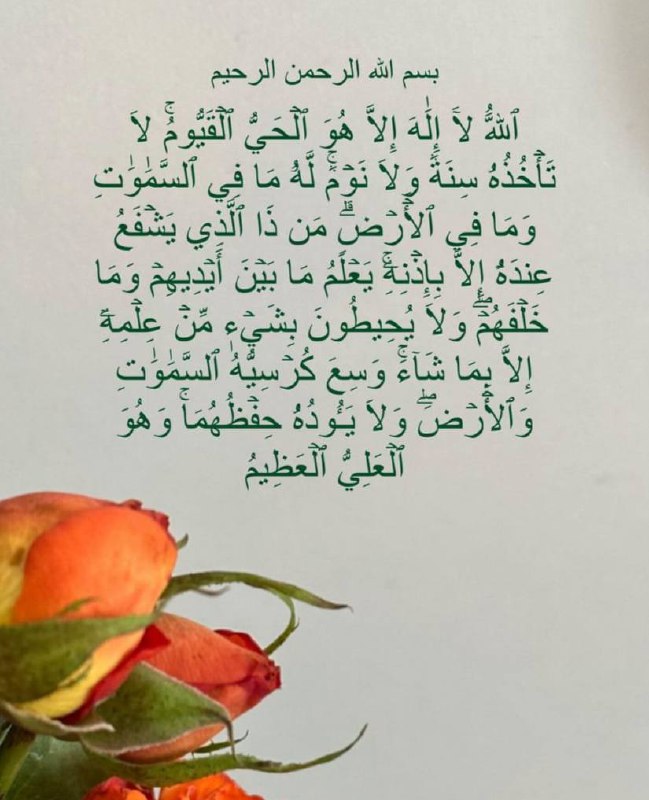 بسم الله الرحمن الرحيم
ٱللَّهُ لَآ إِلَٰهَ إِلَّا هُوَ ٱلۡحَيُّ ٱلۡقَيُّومُۚ لَا
تَأۡخُذُهُۥ سِنَةٞ وَلَا نَوۡمٞۚ لَّهُۥ مَا فِي ٱلسَّمَٰوَٰتِ
وَمَا فِي ٱلۡأَرۡضِۗ مَن ذَا ٱلَّذِي يَشۡفَعُ
عِندَهُۥٓ إِلَّا بِإِذۡنِهِۦۚ يَعۡلَمُ مَا بَيۡنَ أَيۡدِيهِمۡ وَمَا
خَلۡفَهُمۡۖ وَلَا يُحِيطُونَ بِشَيۡءٖ مِّنۡ عِلۡمِهِۦٓ
إِلَّا بِمَا شَآءَۚ وَسِعَ كُرۡسِيُّهُ ٱلسَّمَٰوَٰتِ
وَٱلۡأَرۡضَۖ وَلَا يَـُٔودُهُۥ حِفۡظُهُمَاۚ وَهُوَ
ٱلۡعَلِيُّ ٱلۡعَظِيمُ